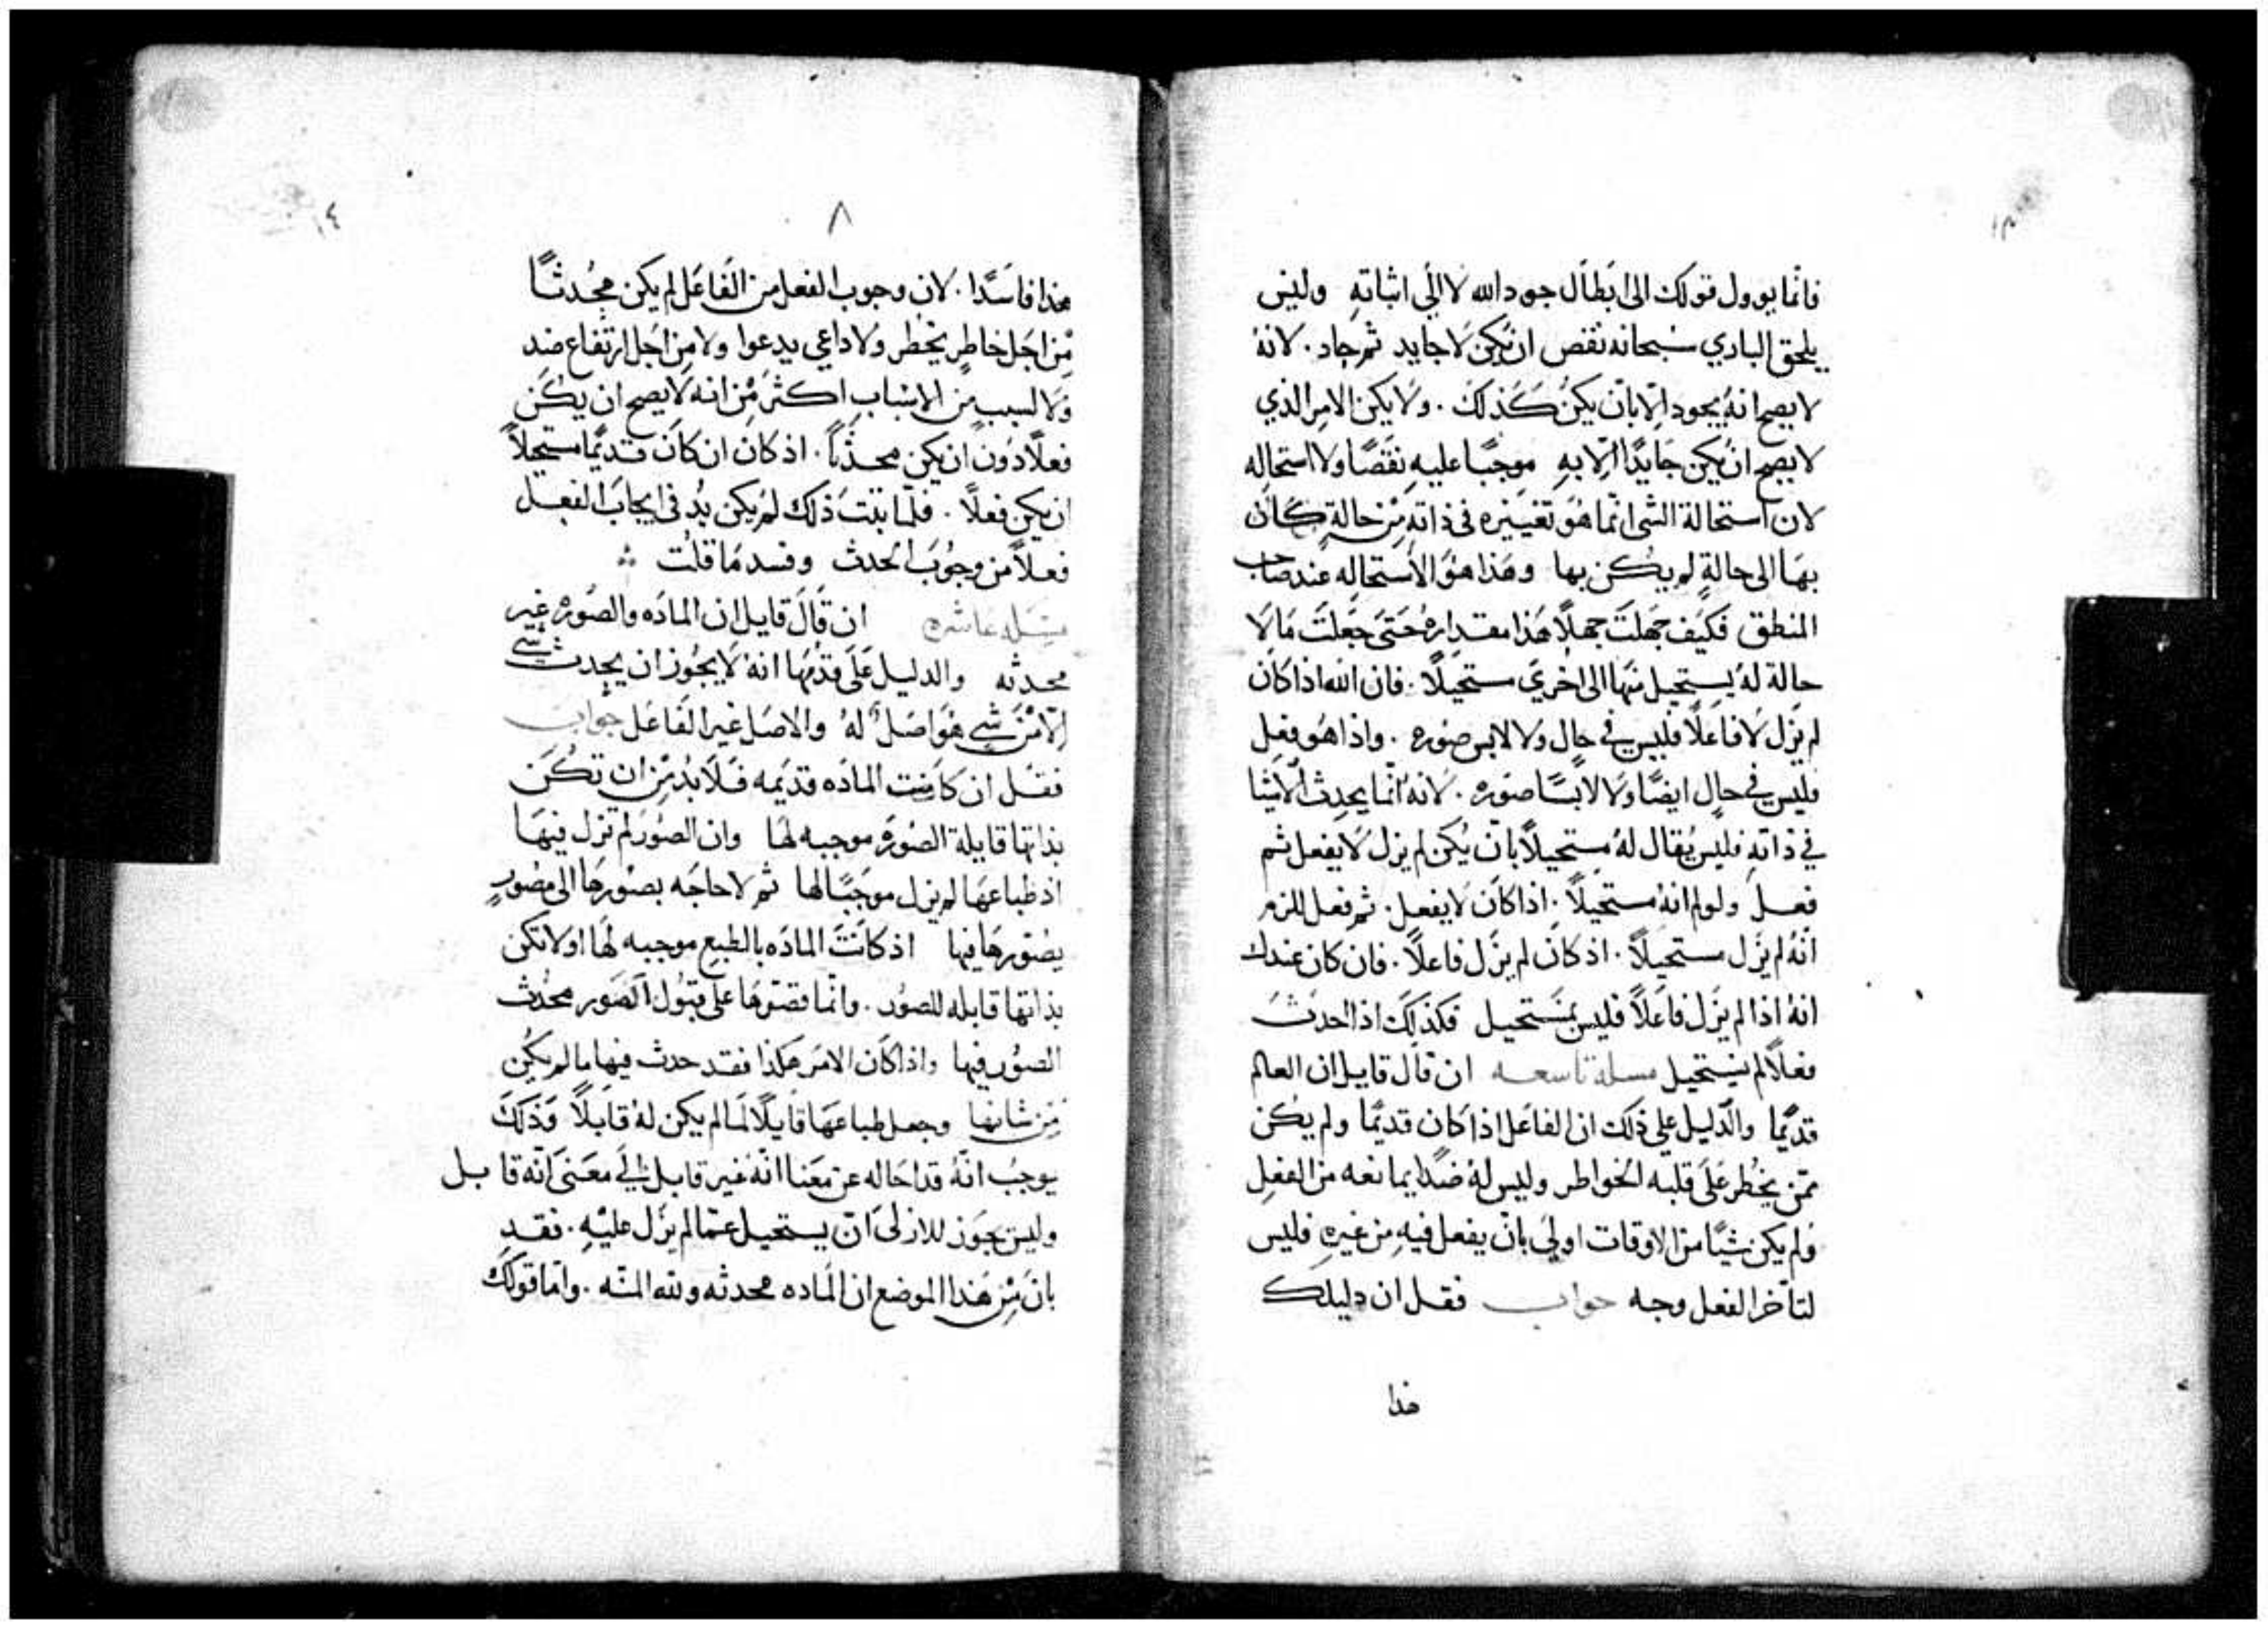 فانما يوول قولك الى ابطال جود الله لا الي اثباته وليس
يلحق الباري سبحانه نقص ان يكن لا جايد ثم جاد . لانه
لا يصح انه يجود الا بان يكن كذلك . ولا يكن الامر الذي
لا يصح ان يكن جايدًا الا به موجبًا عليه نقصًا ولا استحاله
لان استحالة الشي انما هو تغييره في ذاته من حالة كان
بها الى حالةٍ لم يكن بها وهذا هو الاستحاله عند صاحب
المنطق فكيف جهلت جهلًا هذا مقداره حتى جعلت ما لا
حالة له يستحيل منها الى اخري مستحيلًا . فان الله اذا كان
لم يزل لا فاعلًا فليس في حال ولا لابس صوره . واذا هو فعل
فليس في حال ايضًا ولا لابسًا صوره . لانه انما يحدث الاشيا
في ذاته فليس يقال له مستحيلًا بان يكن لم يزل لا يفعل ثم
فعل ولو لم انه مستحيلًا . اذا كان لا يفعل . ثم فعل للزم
انه لم يزل مستحيلًا . اذ كان لم يزل فاعلًا . فان كان عندك
انه اذا لم يزل فاعلًا فليس بمستحيل فكذلك اذا احدث
فعلًا لم يستحيل مسله تاسعه ان قال قايل ان العالم
قديمًا والدليل على ذلك ان الفاعل اذا كان قديمًا ولم يكن
ممن يخطر على قلبه الخواطر وليس له ضدًا يمانعه من الفعل
ولم يكن شيًا من الاوقات اولي بان يفعل فيه من غيره فليس
لتاخر الفعل وجه جواب فقل ان دليلك
هذا
١٤
٨
هذا فاسدًا . لان وجوب الفعل من الفاعل لم يكن محدثًا
من اجل خاطر يخطر ولا داعي يدعوا ولا من اجل ارتفاع ضد
ولا لسبب من الاسباب اكثر من انه لا يصح ان يكن
فعلًا دون ان يكن محدثًا . اذ كان ان كان قديمًا مستحيلًا
ان يكن فعلًا . فلما ثبت ذلك لم يكن بد في ايجاب الفعل
فعلًا من وجوب الحدث وفسد ما قلت
مسله عاشره ان قال قايل ان الماده والصوره غير
محدثه والدليل على قدمها انه لا يجوز ان يحدث شي
الا من شي هو اصل له والاصل غير الفاعل جواب
فقل ان كانت الماده قديمه فلا بد من ان تكن
بذاتها قابلة الصوره موجبه لها وان الصور لم تزل فيها
اذ طباعها لم يزل موجبًا لها ثم لا حاجه بصورها الى مصورٍ
يصورها فيها اذ كانت الماده بالطبع موجبه لها او لا تكن
بذاتها قابله للصور . وانما قصرها على قبول الصور محدث
الصور فيها واذا كان الامر هكذا فقد حدث فيها ما لم يكن
من شانها وجعل طباعها قابلًا لما لم يكن له قابلًا وذلك
يوجب انه قد احاله عن معنا انه غير قابل الي معنى انه قابل
وليس يجوز للازلى ان يستحيل عما لم يزل عليه . فقد
بان من هذا الموضع ان الماده محدثه ولله المنه . واما قولك